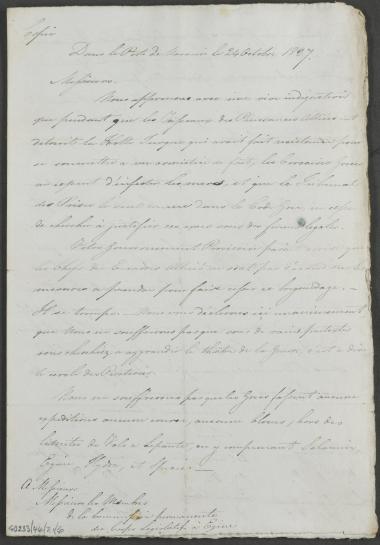 Copie
Dans le Port de Navarin le 24 Octobre 1827.
Messieurs.
Nous apprenons avec une vive indignation
que pendant que les Vaisseaux des Puissances Alliées ont
détruit la Flotte Turque qui avait fait resistance pour
se soumettre a un armistice de fait, les Corsaires Grecs
continuent d'infester les mers, et que le Tribunal
des Prises le seul dans le Code Grec,
cherche à justifier leurs excès par des formes légales.
Votre Gouvernement Provisoire parait croire que
les Chefs des Escadres Alliées ne sont pas d'accord sur les
mesures a prendre pour faire cesser ce brigandage. —
Il se trompe. — Nous vous déclarons ici unanimement
que Nous ne souffrirons pas que sous de vains pretextes
vous cherchiez a aggrandir le théâtre de la Guerre, c'est a dire
le cercle des Pirateries.
Nous ne souffrirons pas que les Grecs fassent aucune
expedition, aucune course, aucun blocus, hors des
limites de Volo a Lepante, en y comprenant Salamine,
Egine, Hydra, et Spezzia —
A Messieurs
Messieurs les Membres
de la Commission permanente
du Corps Législatif à Egine
G0233/44/21/6